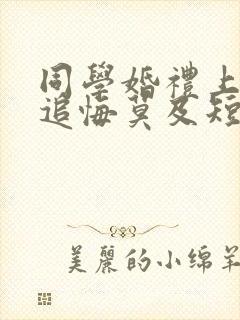 同學婚禮上
追悔莫及短
美麗的小綿羊